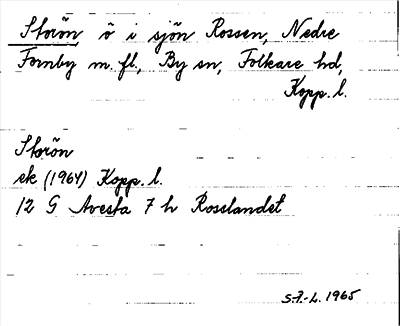 Storön, ö i sjön Rossen, Nedre
Fornby m. fl., By sn, Folkare hd,
Kopp. l.
Storön
ek (1964) Kopp. l.
12 G Avesta 7 h Rosslandet
S.F.-L. 1965